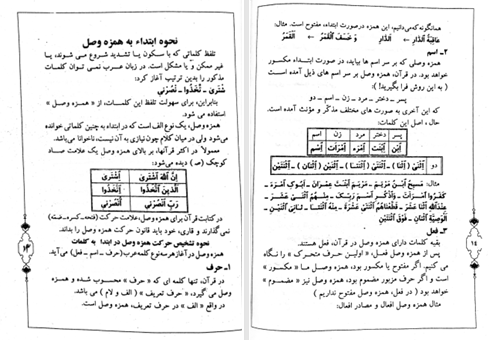 نحوه ابتداء به همزه وصل
تلفظ کلماتی که با سکون یا تشدید شروع می شوند، یا
غیر ممکن و یا مشکل است. در زبان عرب نمی توان کلمات
مذکور را بدین ترتیب آغاز کرد:
شْتَرىٰ ـ تَّخَذُوا ـ نْصُرْنى
بنابراین، برای سهولت تلفظ این کلمات، از « همزه وصل »
استفاده می شود.
همزه وصل، یک نوع الف است که در ابتداء به چنین کلماتی خوانده
می‌شود ولی در میان کلام چون نیازی به آن نیست، ناخوانا می‌باشد.
معمولاً در اکثر قرآنها، بر بالای همزه وصل یک علامت صاد
کوچک (صـ) دیده می‌شود:
اِشْتَرىٰ
اِنَّ اللهَ ٱشْتَرىٰ
اِتَّخَذُوا
الَّذينَ ٱتَّخَذُوا
اُنْصُرْنى
رَبِّ ٱنْصُرْنى
در کتابت قرآن برای همزه وصل، علامت حرکت (فتحه ـ کسره ـ ضمّه)
نمی‌گذارند و قاری، خود باید قانون حرکت همزه وصل را بداند.
نحوه تشخیص حرکت همزه وصل در ابتداء به کلمات
همزه وصل در آغاز هر سه نوع کلمه عرب (حرف ـ اسم ـ فعل) می‌آید.
۱ـ حرف
در قرآن، تنها کلمه ای که « حرف » محسوب شده و همزه
وصل می گیرد، « حرف تعریف » ( الف و لام ) می باشد.
در واقع « الف » در حرف تعریف، همزه وصل است.
۱۳
همانگونه که می‌دانیم، این همزه در صورت ابتداء، مفتوح است. مثال:
عاقِبَةُ ٱلدّارِ ← اَلدّارِ
وَ خَسَفَ ٱلْقَمَرُ ← اَلْقَمَرُ
۲ـ اسم
همزه وصلی که بر سر اسم ها بیاید، در صورت ابتداء مکسور
خواهد بود. در قرآن، همزه وصل بر سر اسم های ذیل آمده است
( به این روش فرا بگیرید! ):
پسر ـ دختر ـ مرد ـ زن ـ اسم ـ دو
که این آخری به صورت های مختلف مذکّر و مؤنّث آمده است.
حال، اصل این کلمات:
پسر دختر مرد زن اسم
اِبْن اِبْنَت اِمْرَء اِمْرَأَت اِسْم
مثال: مَسيحُ ٱبْنُ مَرْيَمَ ـ مَرْيَمَ ٱبْنَتَ عِمْرانَ ـ
۳ـ فعل
بقیه کلمات دارای همزه وصل در قرآن، فعل هستند.
پس از همزه وصل فعل، « اولین حرف متحرک » را نگاه
می کنیم. اگر مفتوح یا مکسور بود، همزه وصل ما « مکسور »
است و اگر حرف مزبور مضموم بود، همزه وصل نیز « مضموم »
خواهد بود ( در فعل، همزه وصل مفتوح نداریم )
مثال همزه وصل افعال و مصادر افعال:
۱۴